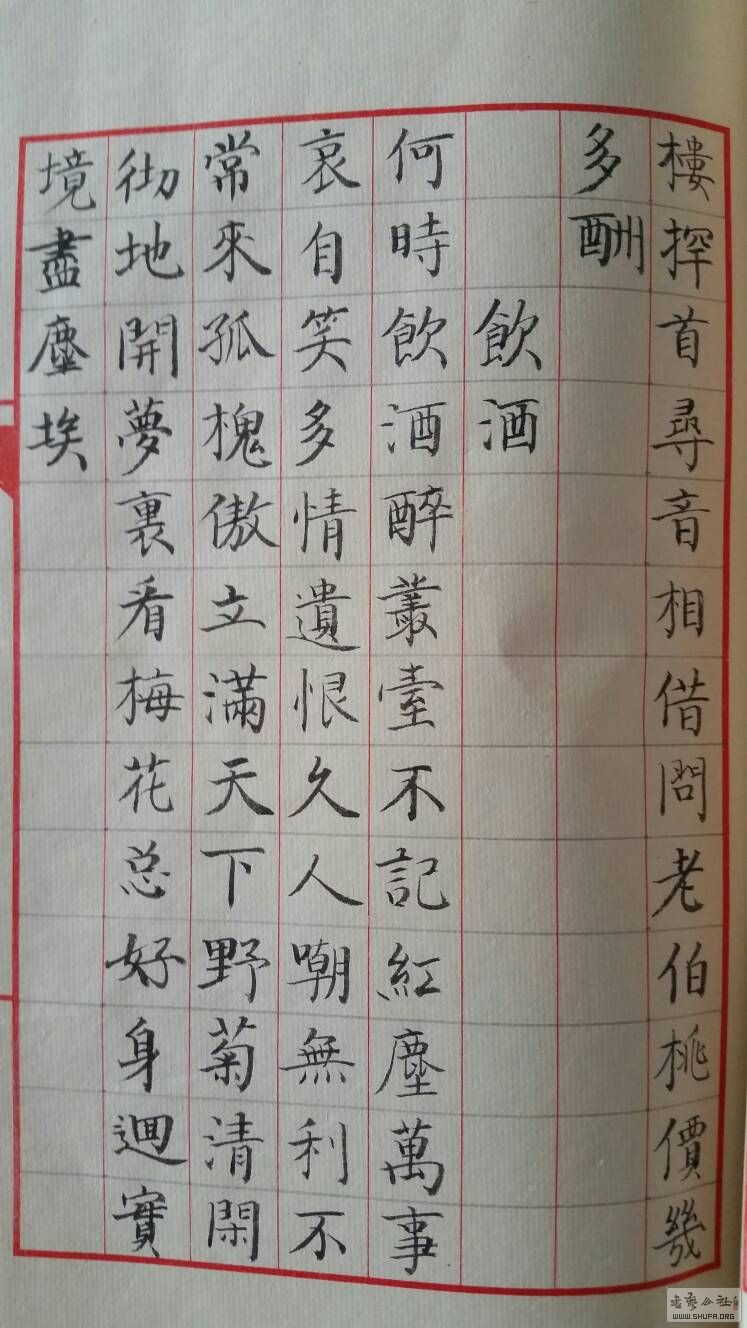 樓探首尋音相借問老伯桃價幾
多酬
飲酒
何時飲酒醉叢臺不記紅塵萬事
哀自笑多情遺恨久人嘲無利不
常來孤槐傲立滿天下野菊清閑
彻地開夢裏看梅花总好身迴實
境盡塵埃
WWW.SHUFA.ORG